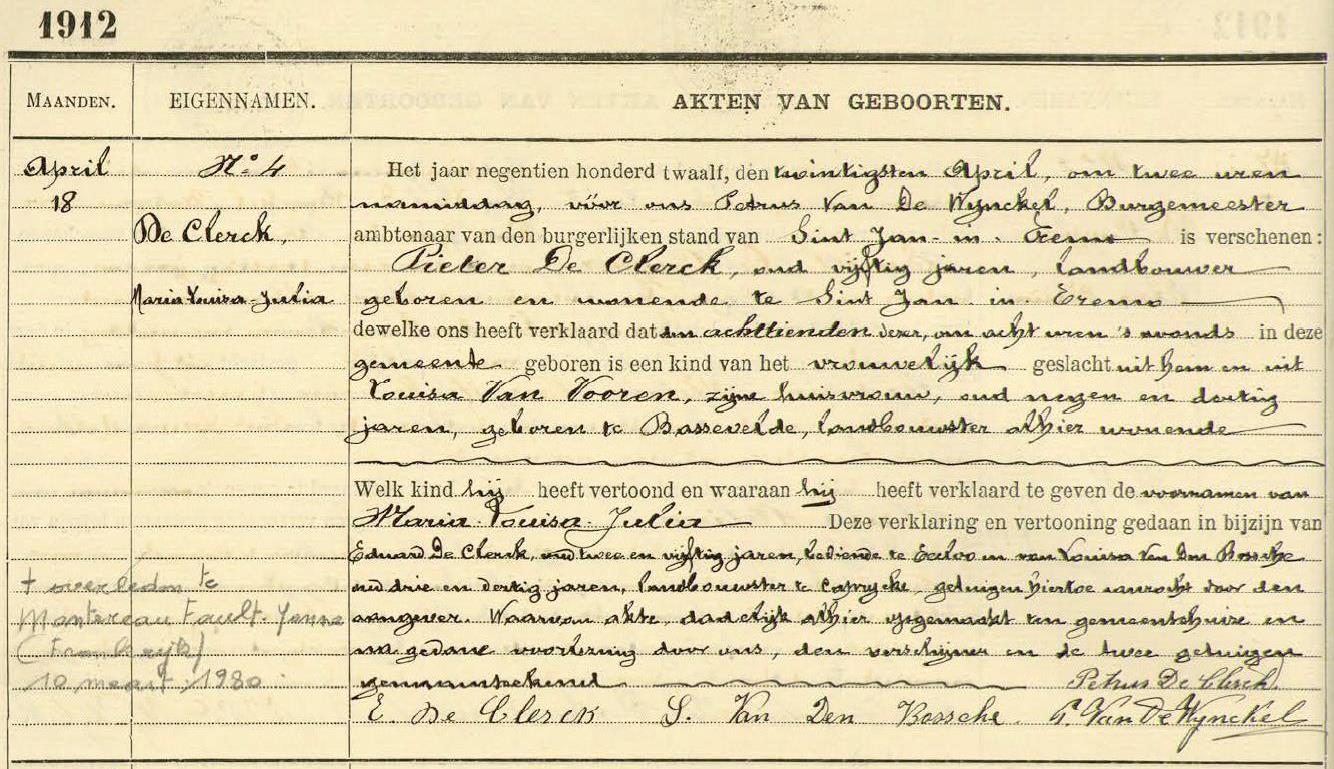 1912
MAANDEN.
EIGENNAMEN.
AKTEN VAN GEBOORTEN.
April
18
N.o 4
De Clerck,
Maria-Louisa-Julia
+ overleden te
Montereau Fault-Yonne
(Frankrijk)
10 maart 1980
Het jaar negentien honderd twaalf, den twintigsten April, om twee uren
namiddag, vóór ons Petrus Van De Wynckel, Burgemeester
ambtenaar van den burgerlijken stand van Sint Jan-in-Eremo is verschenen:
Pieter De Clerck, oud vijftig jaren, landbouwer
geboren en wonende te Sint Jan in Eremo
dewelke ons heeft verklaard dat den achttienden dezer, om acht uren 's avonds in deze
gemeente geboren is een kind van het vrouwelijk geslacht uit hem en uit
Louisa Van Vooren, zijne huisvrouw, oud negen en dertig
jaren, geboren te Bassevelde, landbouwster alhier wonende
Welk kind hij heeft vertoond en waaraan hij heeft verklaard te geven de voornamen van
Maria-Louisa-Julia Deze verklaring en vertooning gedaan in bijzijn van
Eduard De Clerck, oud twee en vijftig jaren, bediende te Eecloo en van Louisa Van Den Bossche
oud drie en dertig jaren, landbouwster te Caprycke, getuigen hiertoe aanzocht door den
aangever. Waarvan akte, dadelijk alhier opgemaakt ten gemeentehuize en
na gedane voorlezing door ons, den verschijner en de twee getuigen
Petrus De Clerck
E. De Clerck L. Van Den Bossche P. Van De Wynckel